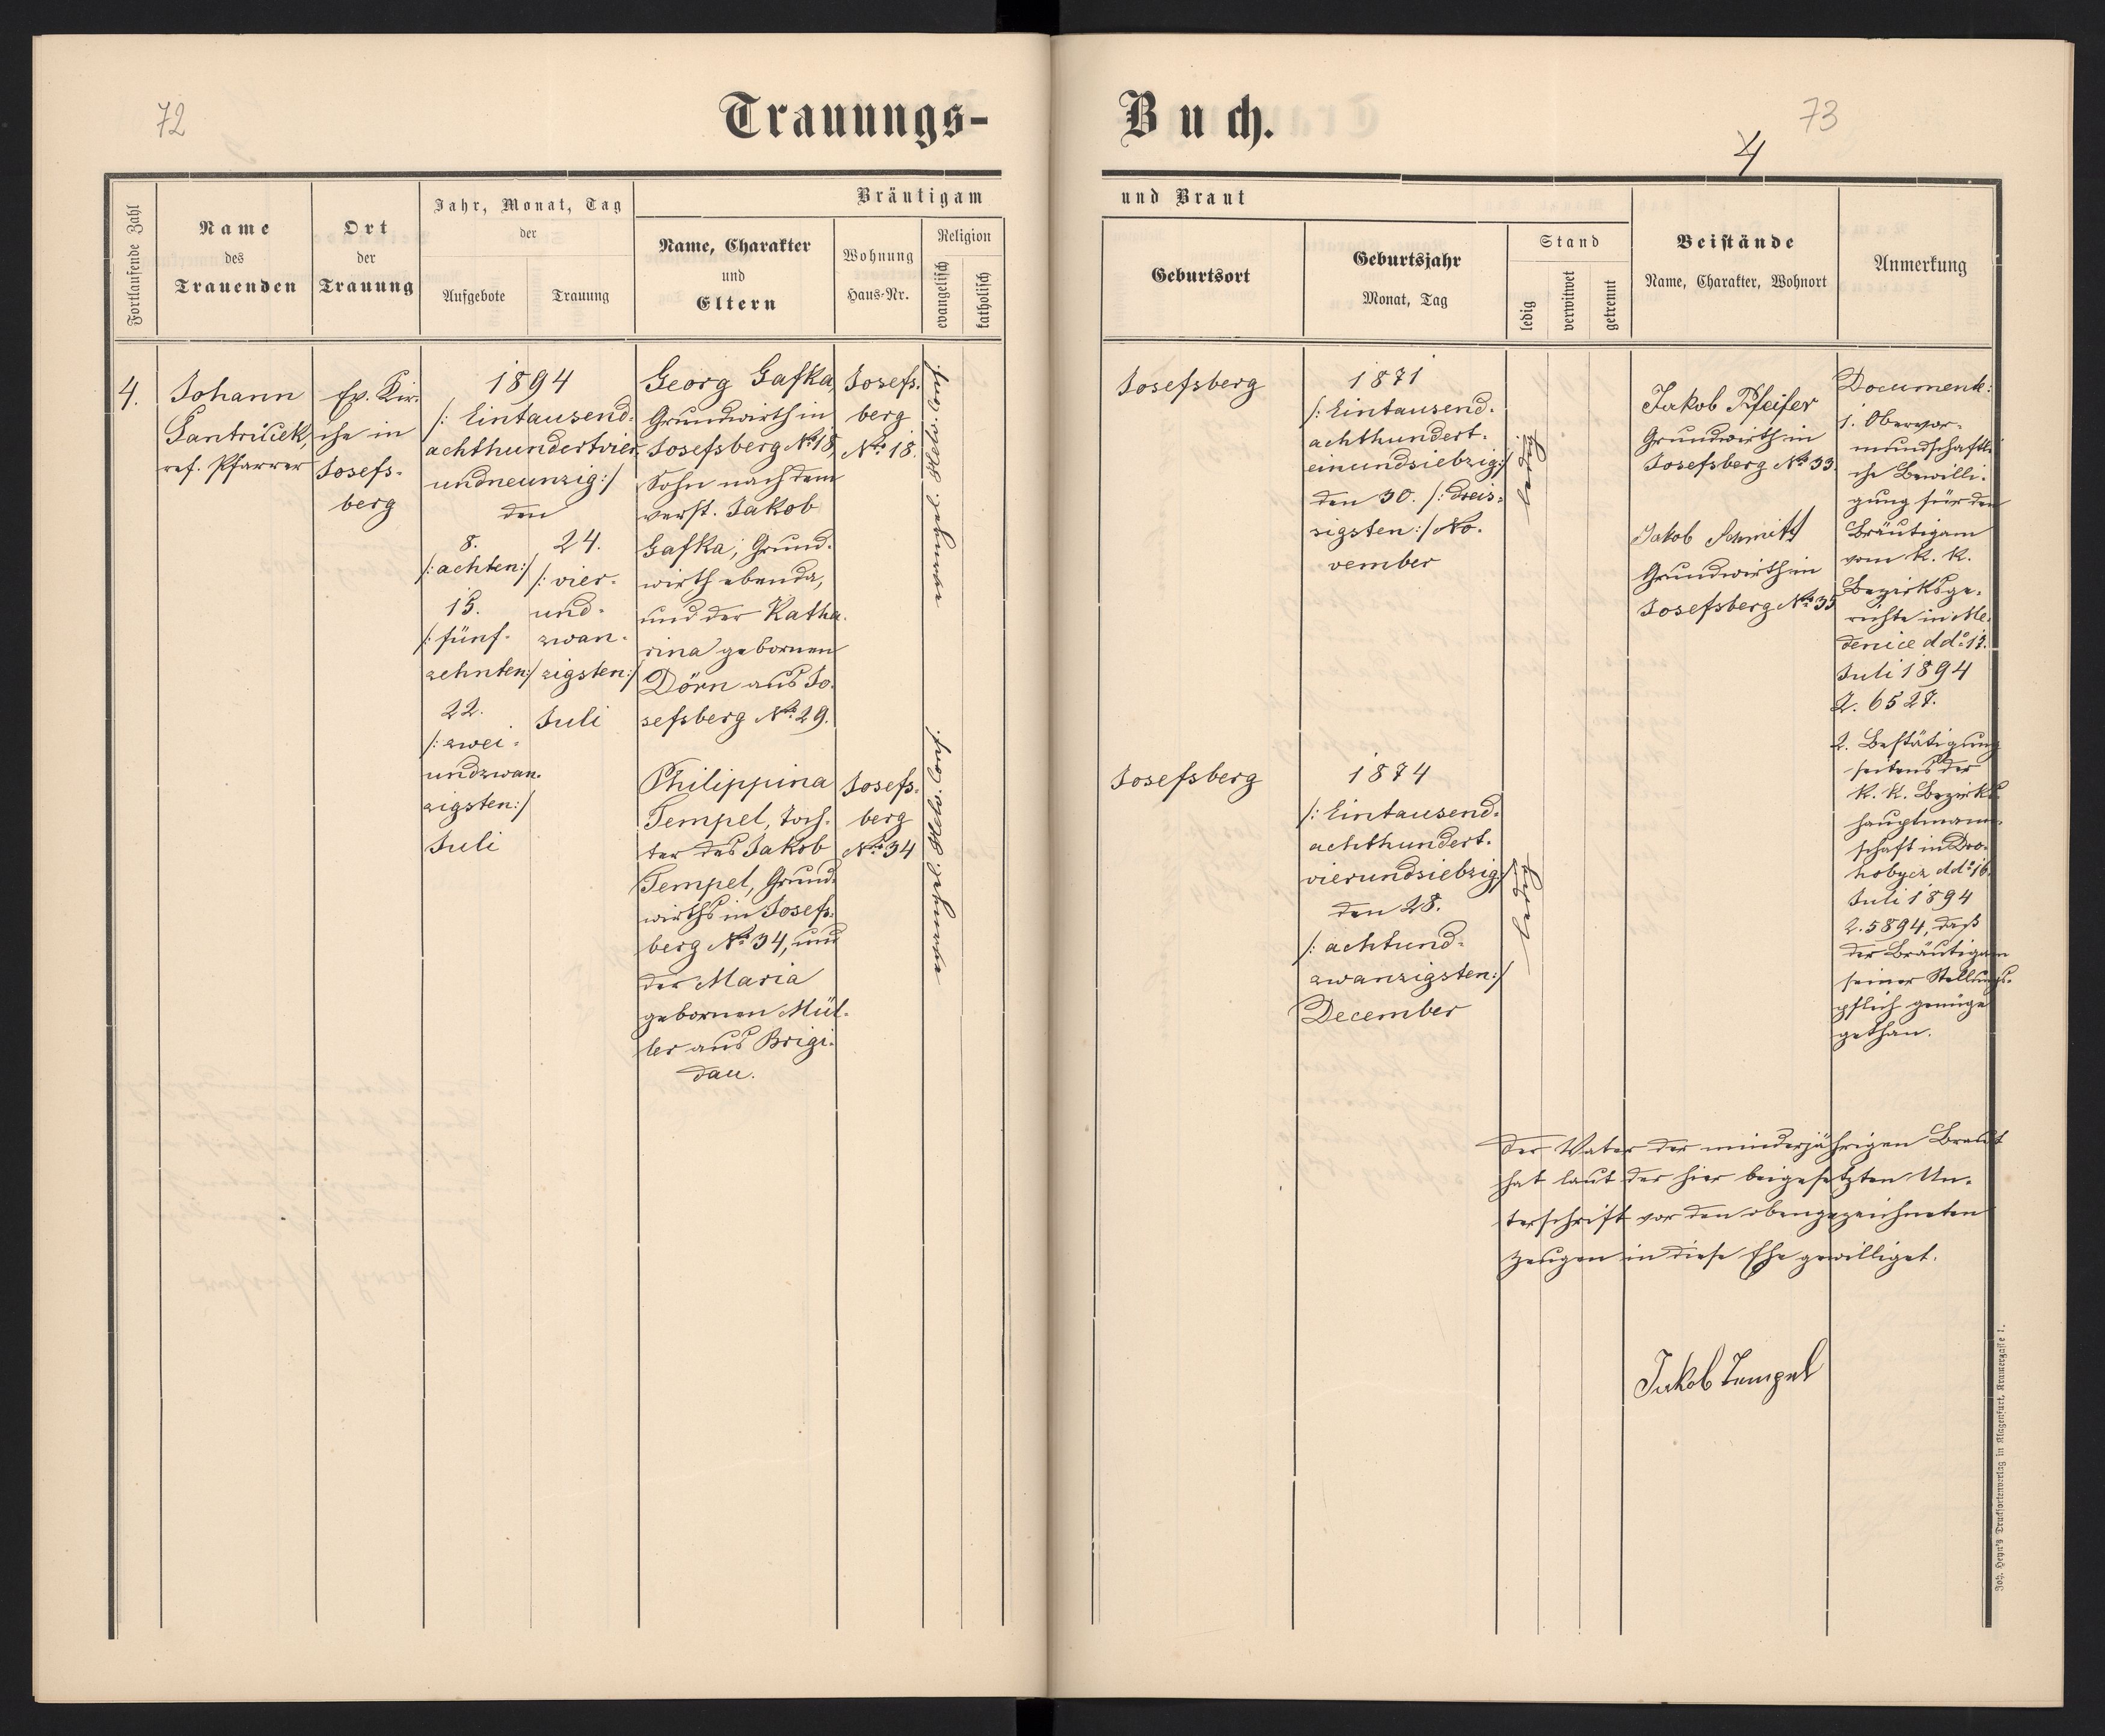 72
Trauungs-
Fortlaufende Zahl
Name
des
Trauenden
Ort
der
Trauung
Jahr, Monat, Tag
der
Aufgebote
Trauung
Bräutigam
Name, Charakter
und
Eltern
Wohnung
Haus-Nr.
Religion
evangelisch
katholisch
4.
Johann
ref. Pfarrer
Ev. Kir-
che in
Josefs-
berg
1894
/: Eintausend-
achthundertvier-
undneunzig :/
den
8.
/: achten :/
15.
/: fünf-
zehnten :/
22.
/: zwei-
undzwan-
zigsten :/
Juli
24.
/: vier-
und-
zwan-
zigsten :/
Juli
Georg Gafka,
Grundwirth in
Josefsberg No 18,
Sohn nach dem
verst. Jakob
Gafka, Grund-
wirth ebenda,
und der Katha-
rina gebornen
Dörn aus Jo-
sefsberg No 29.
Josefs-
berg
No 18.
evangel. Helv. Conf.
Philippina
Tempel, Toch-
ter des Jakob
Tempel, Grund-
wirths in Josefs-
berg No 34, und
der Maria
gebornen Mül-
ler aus Brigi-
dau.
Josefs-
berg
No 34
evangel. Helv. Conf.
Buch.
73
4
und Braut
Geburtsort
Geburtsjahr
Monat, Tag
Stand
ledig
verwitwet
getrennt
Beistände
Name, Charakter, Wohnort
Anmerkung
Josefsberg
1871
/: Eintausend-
achthundert-
einundsiebzig :/
den 30. /: dreis-
sigsten :/ No-
vember
ledig
Josefsberg
1874
/: Eintausend-
achthundert-
vierundsiebzig :/
den 28.
/: achtund-
zwanzigsten :/
December
ledig
Jakob Pfeifer
Grundwirth in
Josefsberg No 33.
Jakob Schmitt
Grundwirth in
Josefsberg No 35
Documente:
1. Obervor-
mundschaftli-
che Bewilli-
gung für den
Bräutigam
vom k. k.
Bezirksge-
richte in Me-
denice ddo 12.
Juli 1894
Z. 6527.
2. Bestätigung
seitens der
k. k. Bezirks-
hauptmann-
schaft in Dro-
hobycz ddo 16.
Juli 1894
Z. 5894, daß
der Bräutigam
seiner Stellungs-
pflich genüge
gethan.
Der Vater der minderjährigen Braut
hat laut der hier beigesetzten Un-
terschrift vor den obengezeichneten
Zeugen in diese Ehe gewilliget.
Jakob Tempel
Joh. Heyn's Drucksortenverlag in Klagenfurt, Kramergasse 1.